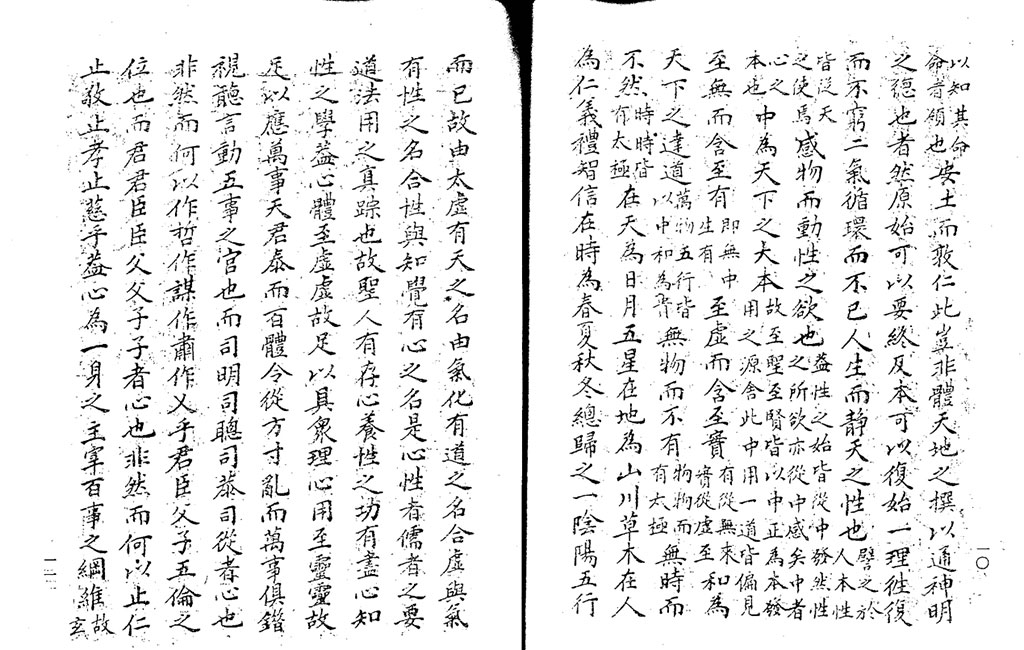 以知其命
命者也
安土而敦仁此豈非體天地之撰以通神明
之德也者然原始可以要終反本可以復始一理徃復
而不窮二氣循環而不已人生而靜天之性也
譬之於
人本性
皆從天
之使焉
感物而動性之欲也
益性之始皆從中發然性
之所欲亦從中感矣中者
心之
本也
中為天下之大本
故至聖至賢皆以中正為本發
用之源舍此中用一道皆偏見
至無而含至有
即無中
生有
至虛而含至實
有從無來
實從虛至
和為
天下之達道
萬物五行皆
以中和為育
無物而不有
物物而
有太極
無時而
不然
時時皆
有太極
在天為日月五星在地為山川草木在人
為仁義禮智信在時為春夏秋冬總歸之一陰陽五行
一〇
而已故由太虛有天之名由氣化有道之名合虛與氣
有性之名合性與知覺有心之名是心性者儒者之要
道法用之真踪也故聖人有存心養性之功有盡心知
性之學葢心體至虛虛故足以具衆理心用至靈靈故
足以應萬事天君泰而百體令從方寸亂而萬事俱錯
視聽言動五事之官也而司明司聰司恭司從者心也
非然而何以作哲作謀作肅作乂乎君臣父子五倫之
位也而君君臣臣父父子子者心也非然而何以止仁
止敬止孝止慈乎葢心為一身之主宰百事之綱維
故
玄
一一